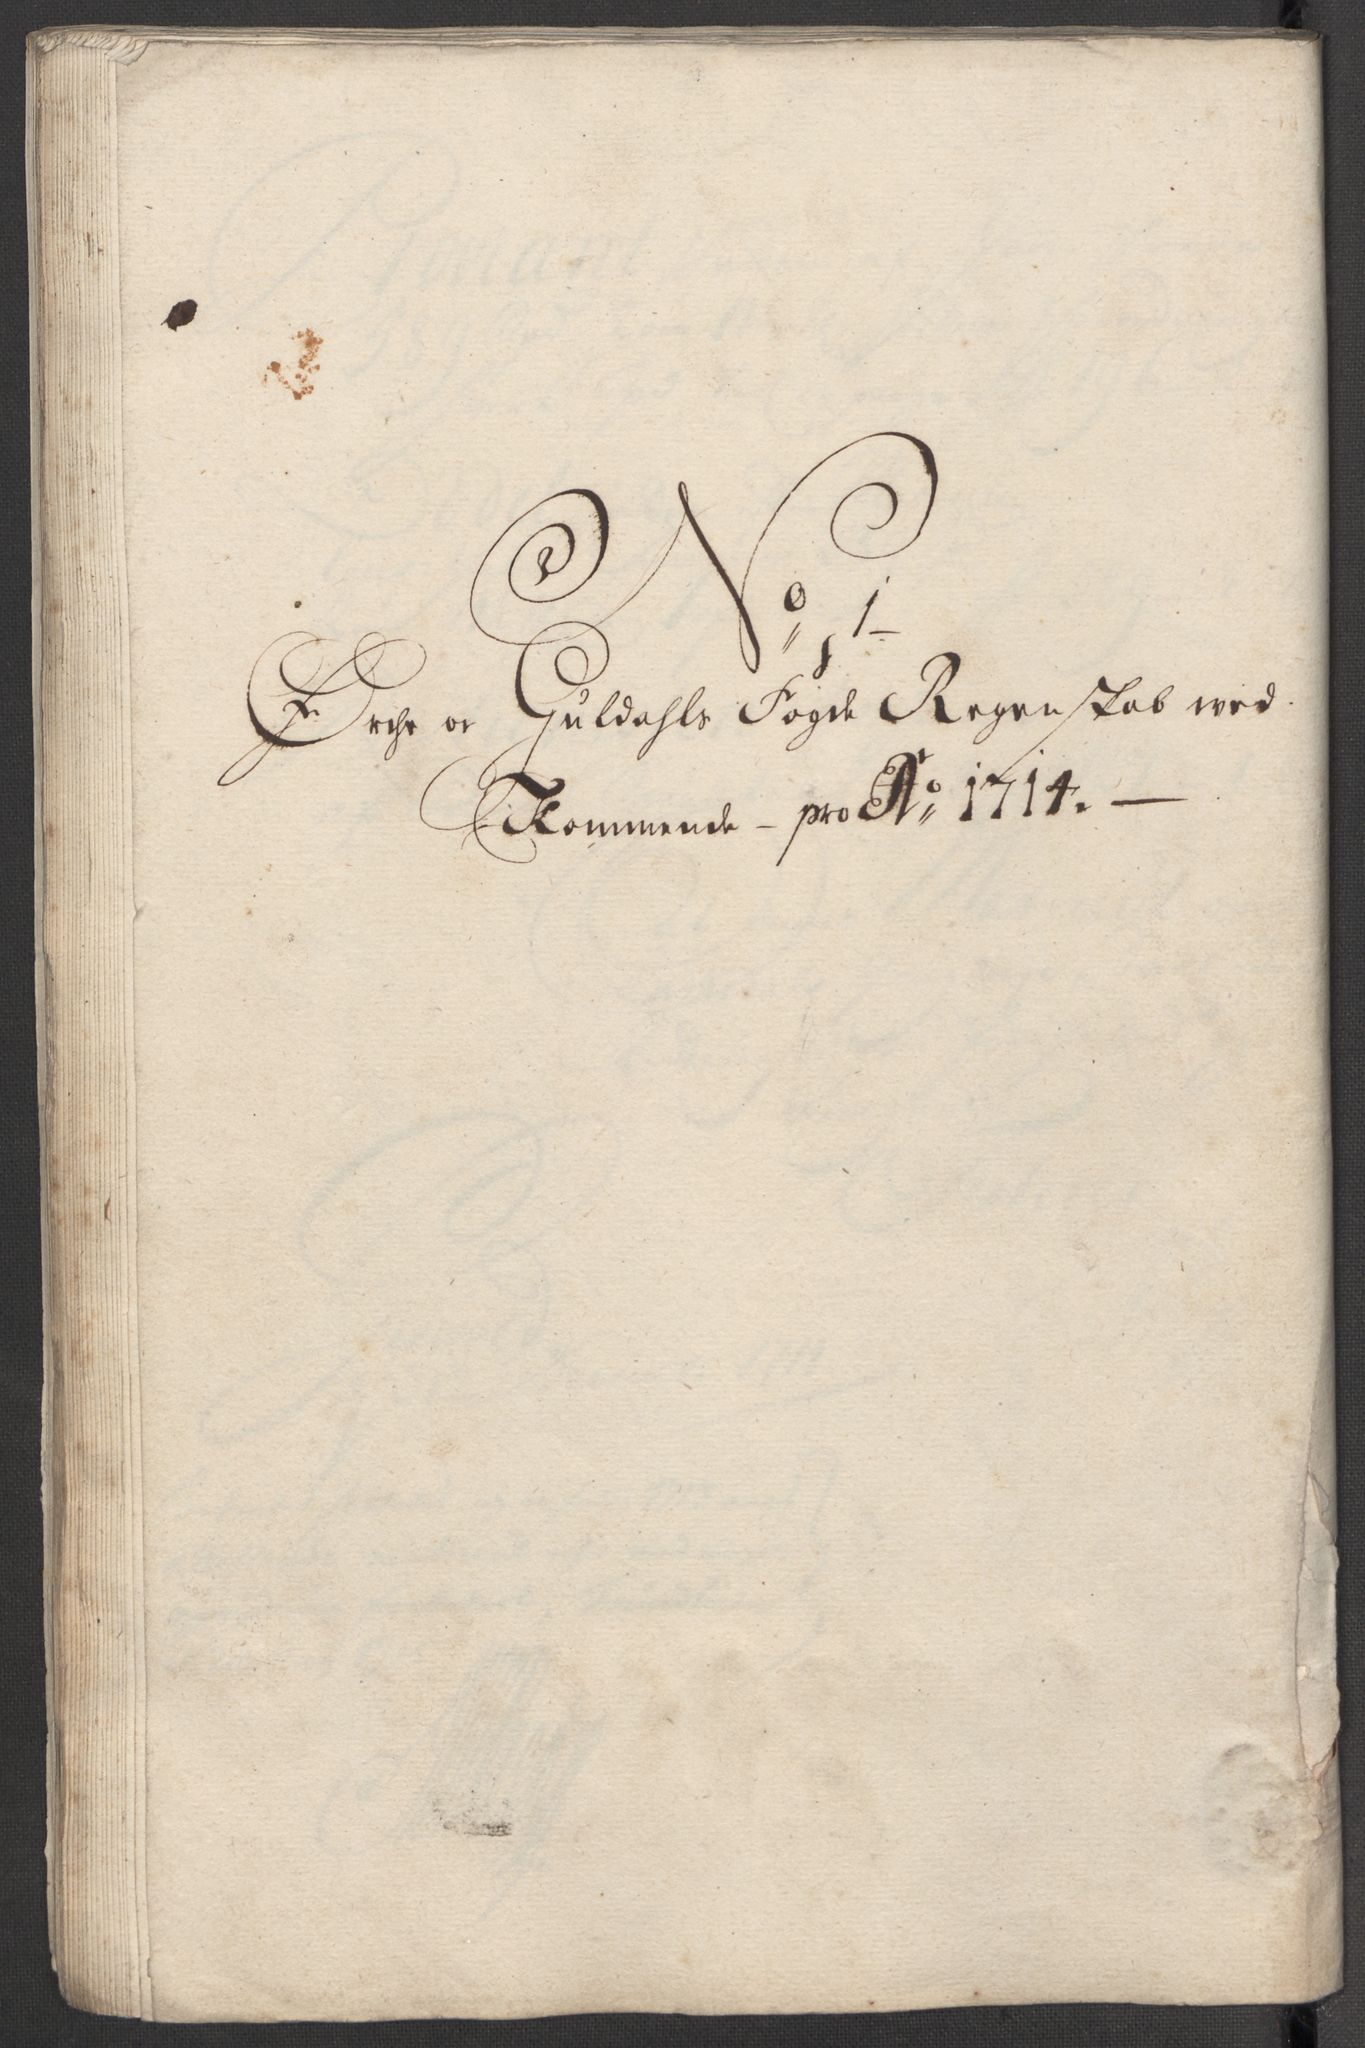 No: 1
Orche oc Guldahls Fogde Regenskab wed
Kommende - pro Ao: 1714. —